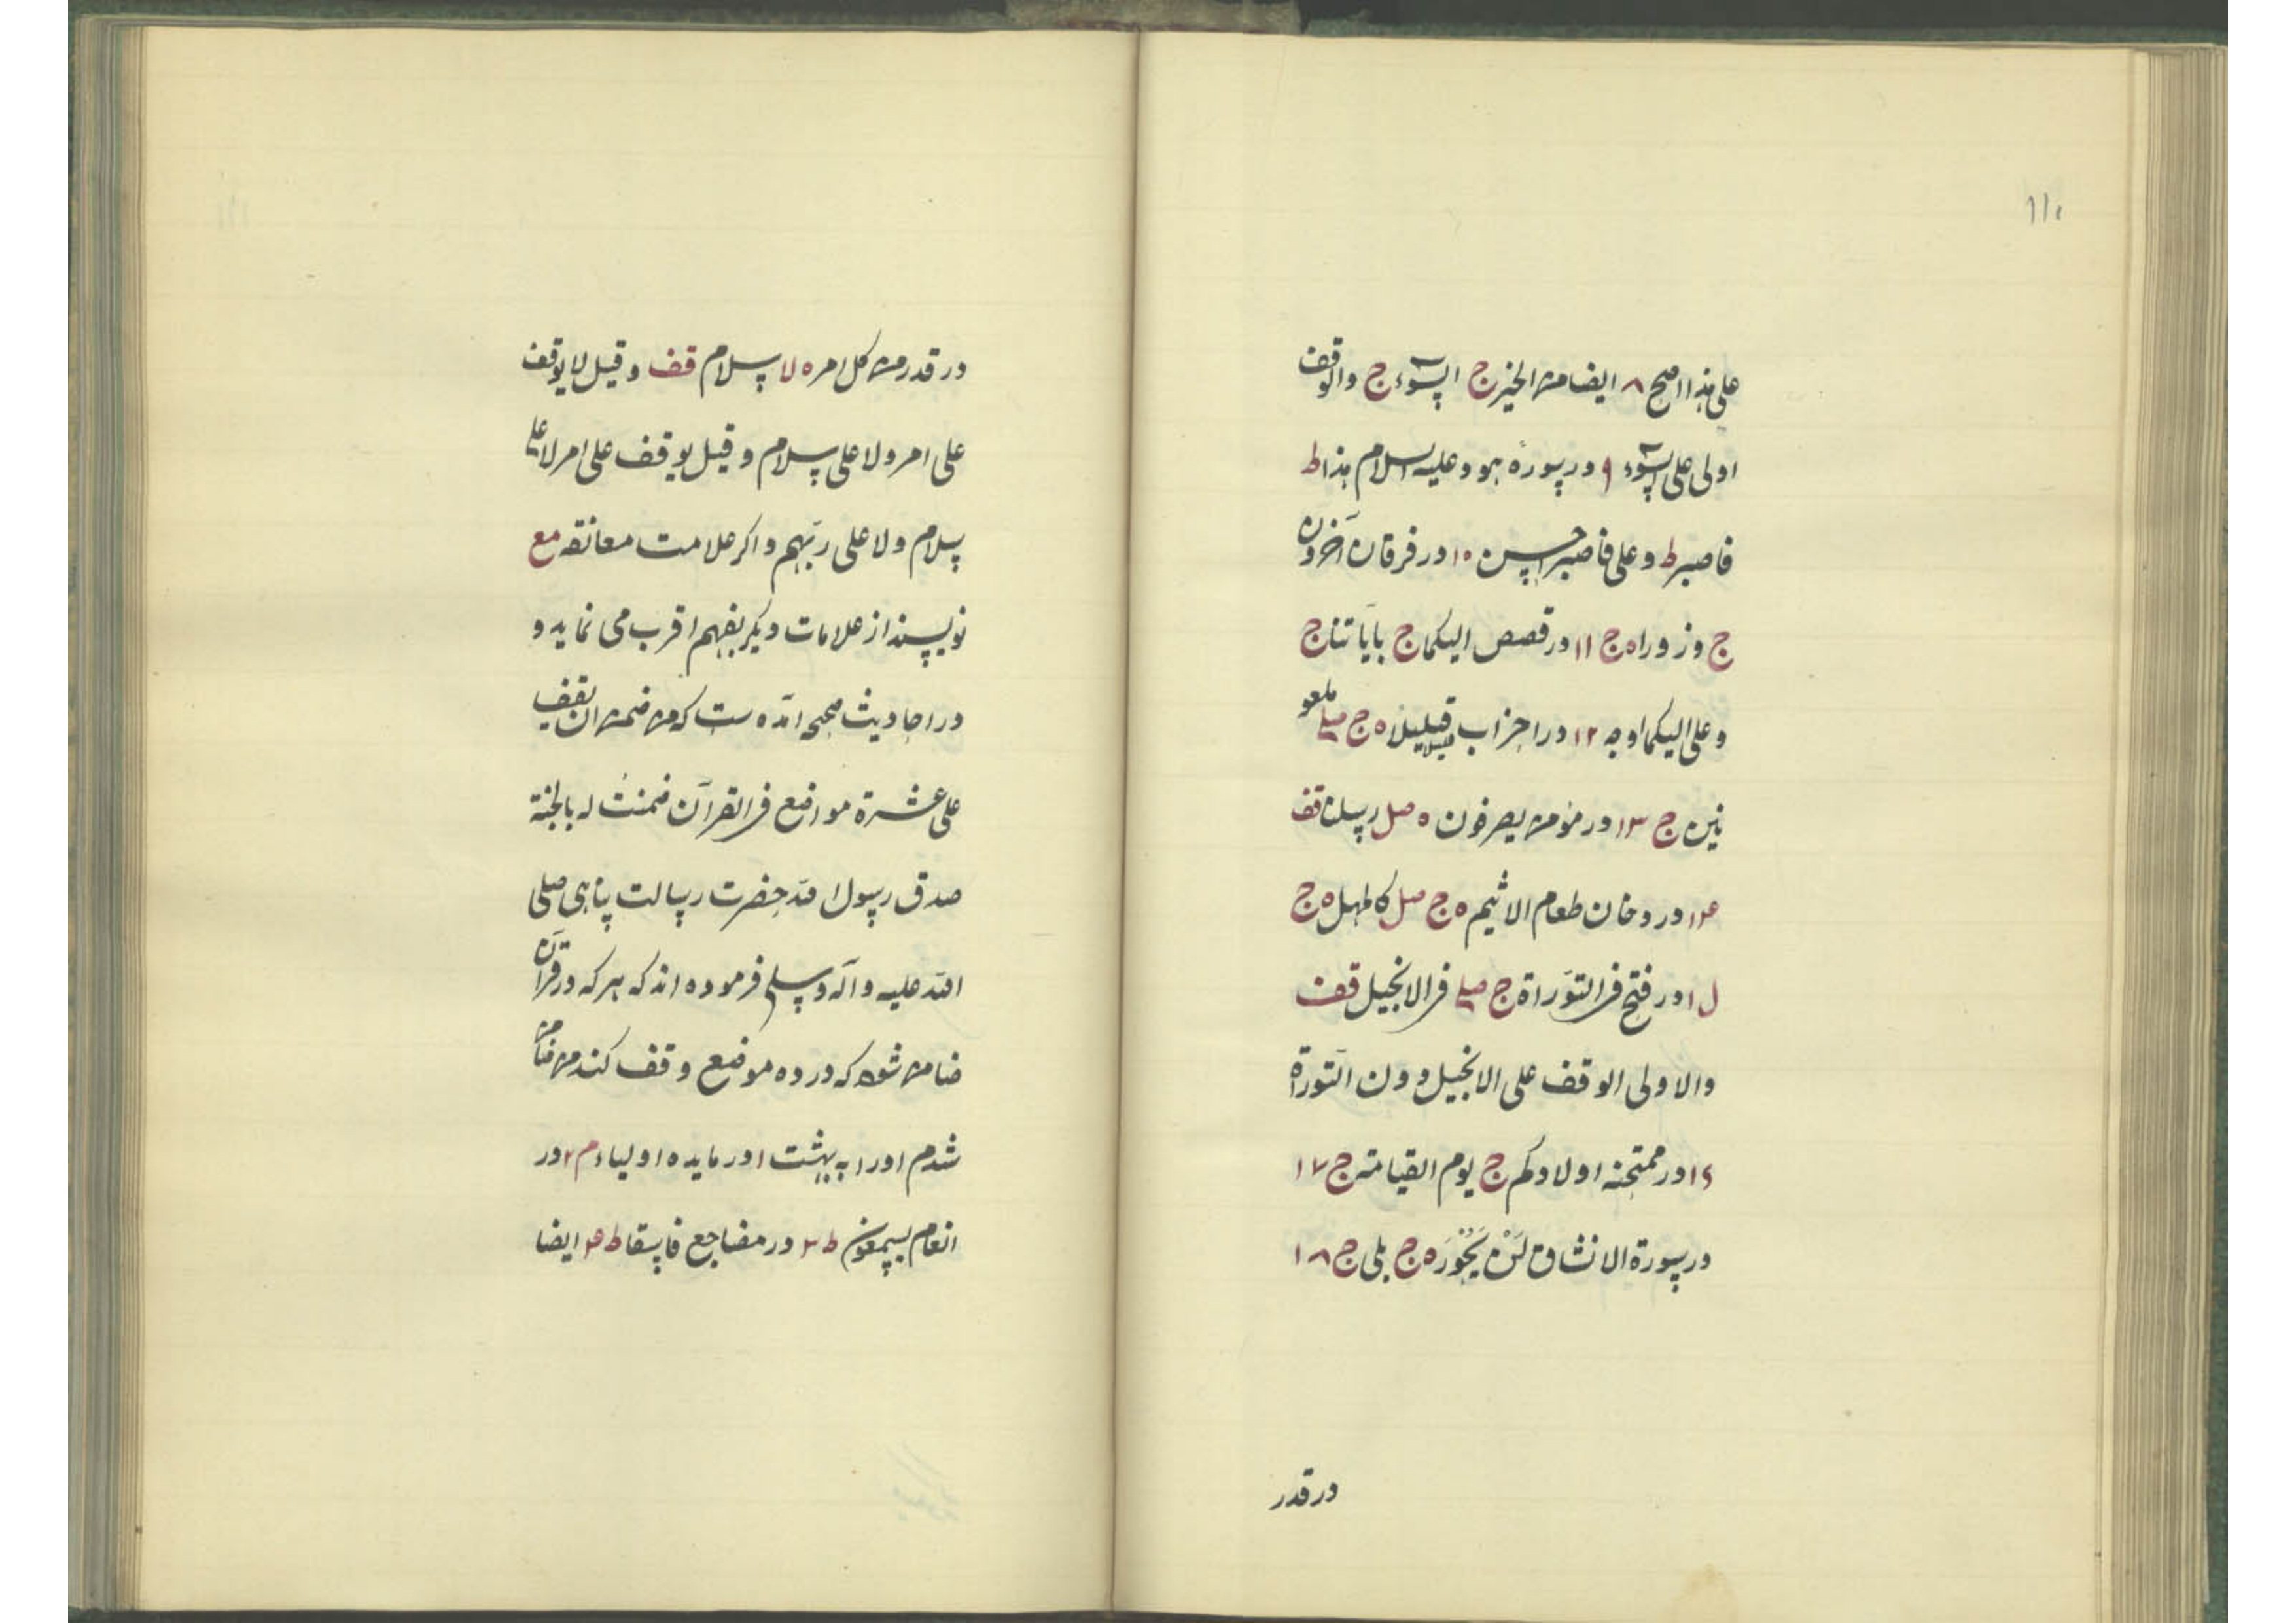 ۱۱۰
علی هذا اصح ۸ ایضا من الخیر ج السّوء ج والوقف
اولی علی السّوء ۹ در سورهٔ هود علیه السلام هذا ط
فاصبر ط و علی فاصبر احسن ۱۰ در فرقان آخرون
ج وزورا ه ج ۱۱ در قصص الیکما ج بآیاتنا ج
و علی الیکما اوجه ۱۲ در احزاب قلیلا ه ج صلے ملعو
نین ج ۱۳ در مؤمن یصرفون ه صل رسلنا قف
۱۴ در دخان طعام الاثیم ه ج صل کالمهل ه ج
ل ۱ در فتح فی التوراة ج صلے فی الانجیل قف
والاولی الوقف علی الانجیل دون التوراة
۱۶ در ممتحنه اولادکم ج یوم القیامة ج ۱۷
در سورة الانشاق لَنْ یَحُوْرَ ه ج بلی ج ۱۸
در قدر
در قدر من کل امر ه لا سلام قف و قیل لا یوقف
علی امر ولا علی سلام و قیل یوقف علی امر لا علی
سلام ولا علی ربّهم و اکر علامت معانقه مع
نویسند از علامات دیکر بفهم اقرب می نماید و
در احادیث صحیحه آمده ست که من ضمن ان یقف
علی عشرة مواضع فی القرآن ضمنتُ له بالجنة
صدق رسول الله حضرت رسالت پناهی صلی
الله علیه وآله وسلم فرموده اند که هر که در قرآن
ضامن شود که در ده موضع وقف کند من ضامن
شدم او را به بهشت ۱ در مایده اولیاء م ۲ در
انعام یسمعون ط ۳ در مضاجع فاسقا ط ۴ ایضا